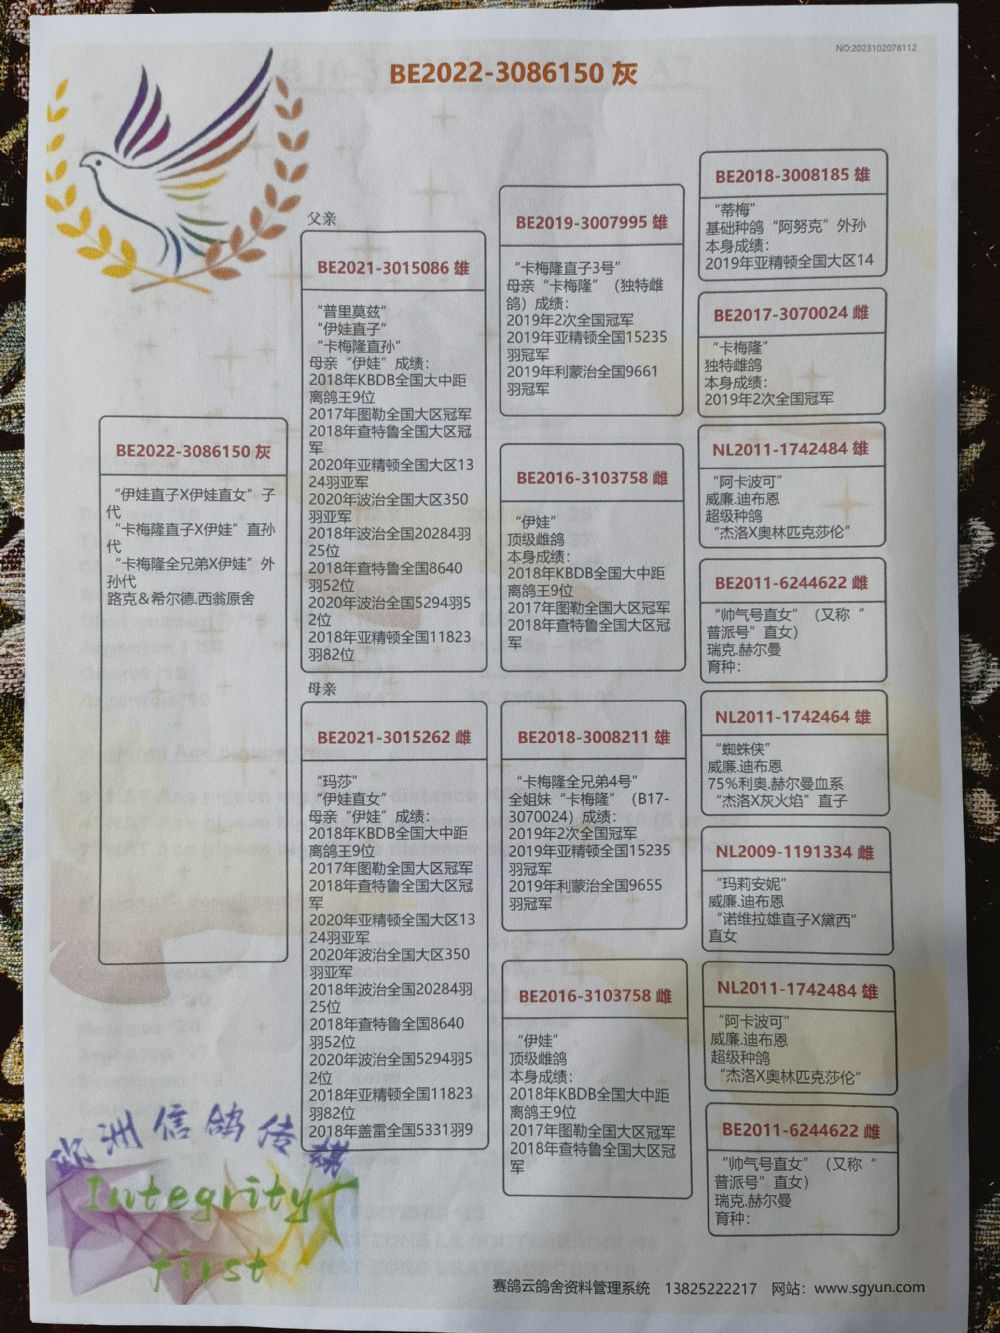 NO:2023102078112
BE2022-3086150 灰
BE2022-3086150 灰
“伊娃直子X伊娃直女”子
代
“卡梅隆直子X伊娃”直孙
代
“卡梅隆全兄弟X伊娃”外
孙代
路克＆希尔德.西翁原舍
父亲
BE2021-3015086 雄
“普里莫兹”
“伊娃直子”
“卡梅隆直孙”
母亲“伊娃”成绩：
2018年KBDB全国大中距
离鸽王9位
2017年图勒全国大区冠军
2018年查特鲁全国大区冠
军
2020年亚精顿全国大区13
24羽亚军
2020年波治全国大区350
羽亚军
2018年波治全国20284羽
25位
2018年查特鲁全国8640
羽52位
2020年波治全国5294羽5
2位
2018年亚精顿全国11823
羽82位
母亲
BE2021-3015262 雌
“玛莎”
“伊娃直女”
母亲“伊娃”成绩：
2018年KBDB全国大中距
离鸽王9位
2017年图勒全国大区冠军
2018年查特鲁全国大区冠
军
2020年亚精顿全国大区13
24羽亚军
2020年波治全国大区350
羽亚军
2018年波治全国20284羽
25位
2018年查特鲁全国8640
羽52位
2020年波治全国5294羽5
2位
2018年亚精顿全国11823
羽82位
2018年盖雷全国5331羽9
BE2019-3007995 雄
“卡梅隆直子3号”
母亲“卡梅隆”（独特雌
鸽）成绩：
2019年2次全国冠军
2019年亚精顿全国15235
羽冠军
2019年利蒙治全国9661
羽冠军
BE2016-3103758 雌
“伊娃”
顶级雌鸽
本身成绩：
2018年KBDB全国大中距
离鸽王9位
2017年图勒全国大区冠军
2018年查特鲁全国大区冠
军
BE2018-3008211 雄
“卡梅隆全兄弟4号”
全姐妹“卡梅隆”（B17-
3070024）成绩：
2019年2次全国冠军
2019年亚精顿全国15235
羽冠军
2019年利蒙治全国9655
羽冠军
BE2016-3103758 雌
“伊娃”
顶级雌鸽
本身成绩：
2018年KBDB全国大中距
离鸽王9位
2017年图勒全国大区冠军
2018年查特鲁全国大区冠
军
BE2018-3008185 雄
“蒂梅”
基础种鸽“阿努克”外孙
本身成绩：
2019年亚精顿全国大区14
BE2017-3070024 雌
“卡梅隆”
独特雌鸽
本身成绩：
2019年2次全国冠军
NL2011-1742484 雄
“阿卡波可”
威廉.迪布恩
超级种鸽
“杰洛X奥林匹克莎伦”
BE2011-6244622 雌
“帅气号直女”（又称“
普派号”直女）
瑞克.赫尔曼
育种：
NL2011-1742464 雄
“蜘蛛侠”
威廉.迪布恩
75%利奥.赫尔曼血系
“杰洛X灰火焰”直子
NL2009-1191334 雌
“玛莉安妮”
威廉.迪布恩
“诺维拉雄直子X黛西”
直女
NL2011-1742484 雄
“阿卡波可”
威廉.迪布恩
超级种鸽
“杰洛X奥林匹克莎伦”
BE2011-6244622 雌
“帅气号直女”（又称“
普派号”直女）
瑞克.赫尔曼
育种：
欧洲信鸽传媒
Integrity
first
赛鸽云鸽舍资料管理系统 13825222217 网站：www.sgyun.com